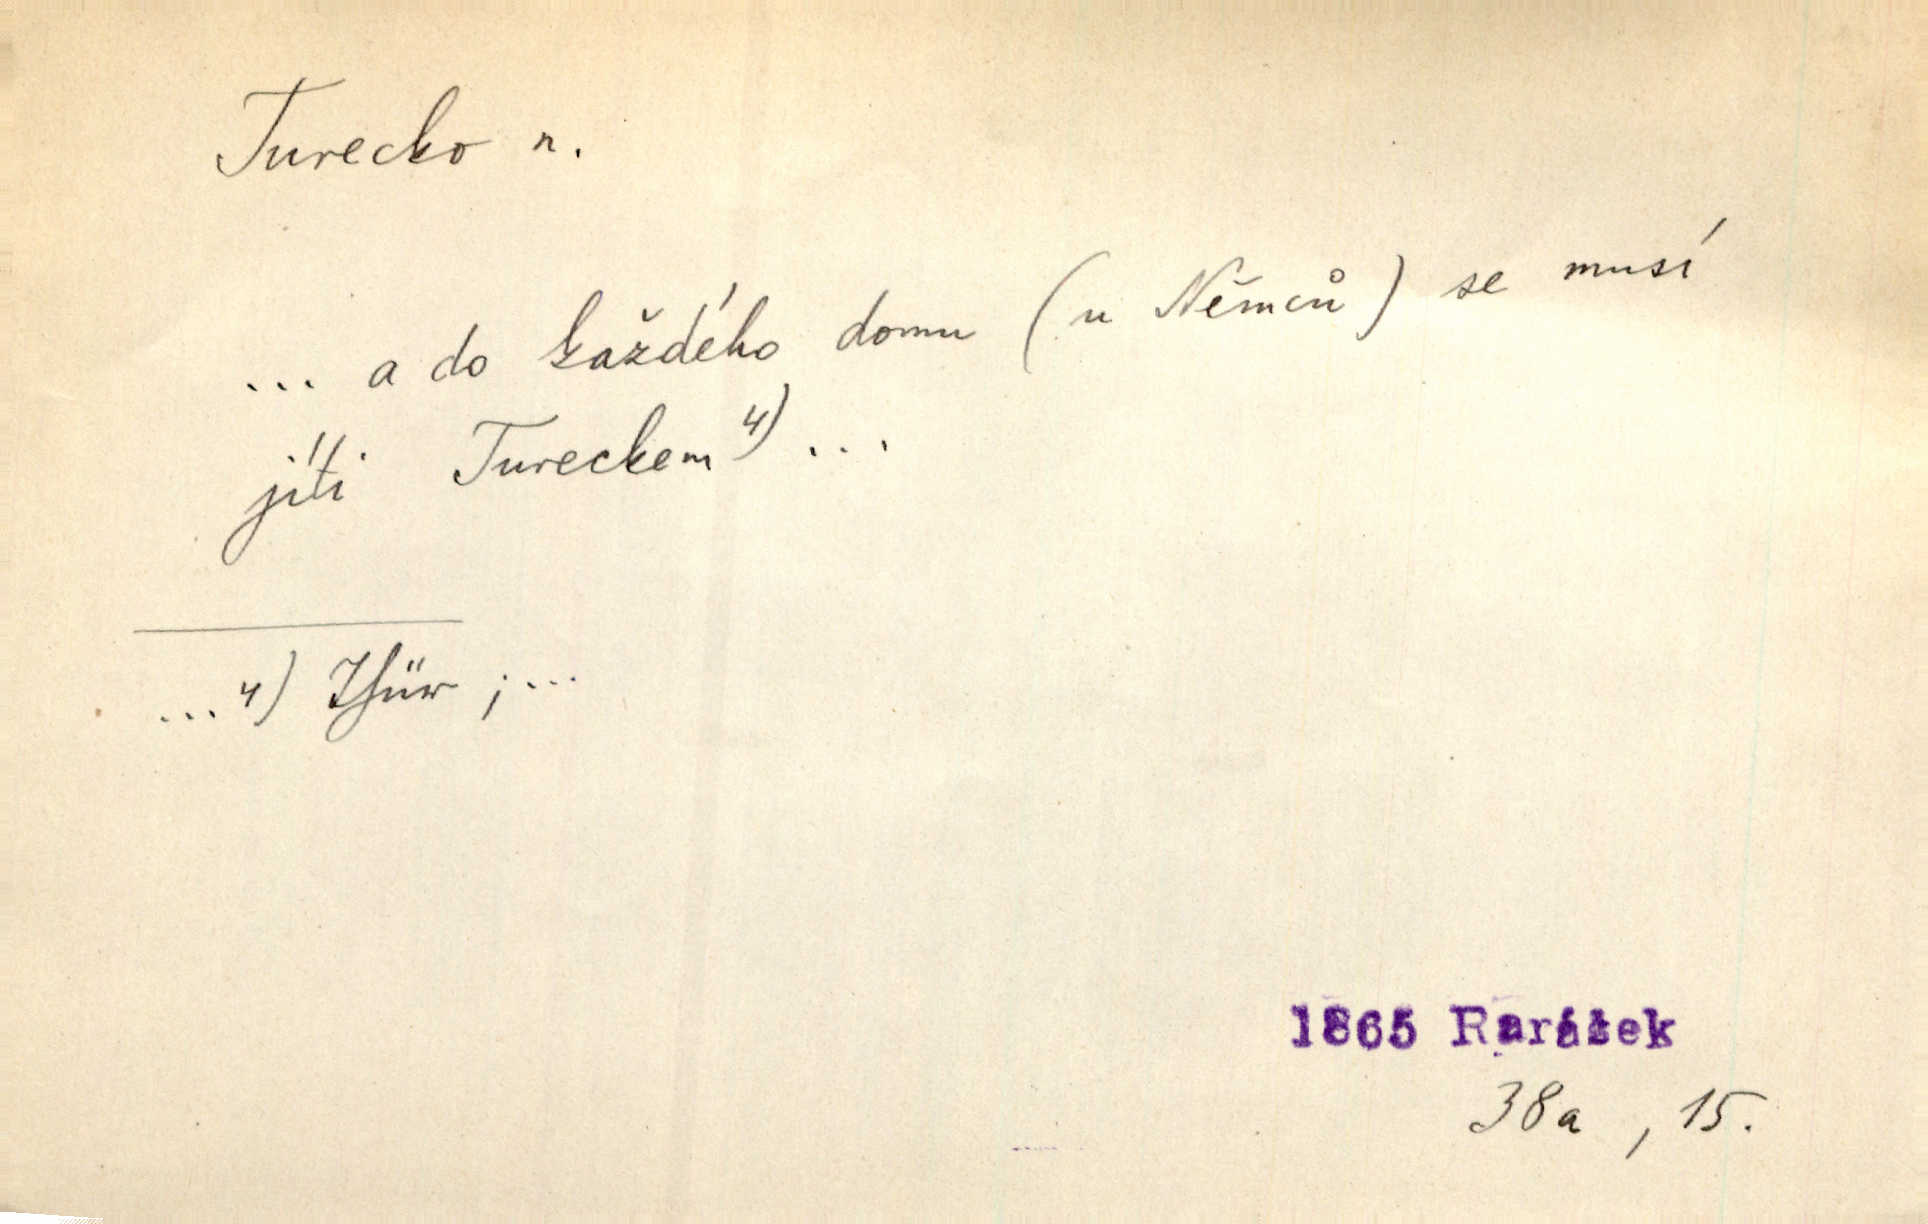 Turecko n.
... a do každého domu (u Němců) se musí
jíti Tureckem 4) ...
... 4) Thür ; ...
1865 Rarášek
38a , 15.